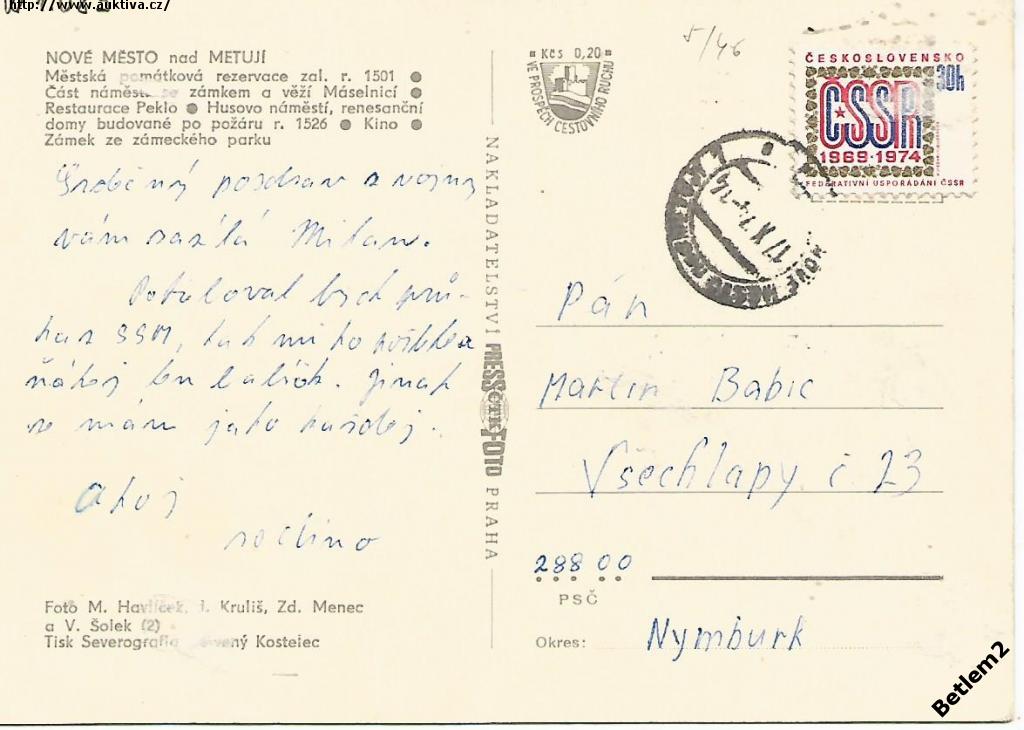 http://www.auktiva.cz/
NOVÉ MĚSTO nad METUJÍ
Městská památková rezervace zal. r. 1501 ●
Část náměstí se zámkem a věží Máselnicí ●
Restaurace Peklo ● Husovo náměstí, renesanční
domy budované po požáru r. 1526 ● Kino ●
Zámek ze zámeckého parku
Srdečný pozdrav z vojny
vám zasílá Milan.
Potřeboval bych prů-
kaz SSM, tak mi ho pošlete
ňákej ten balíček. Jinak
se mám jako každej.
Ahoj
rodino
Foto M. Havlíček, J. Kruliš, Zd. Menec
a V. Šolek (2)
Tisk Severografia, Červený Kostelec
NAKLADATELSTVÍ PRESSFOTO PRAHA
ČTK
Kčs 0,20
VE PROSPĚCH CESTOVNÍHO RUCHU
5/46
ČESKOSLOVENSKO
30h
ČSSR
1969·1974
FEDERATIVNÍ USPOŘÁDÁNÍ ČSSR
NOVÉ MĚSTO NAD METUJÍ
Pán
Martin Babic
Všechlapy č 23
288 00
PSČ
Okres: Nymburk
Betlem2